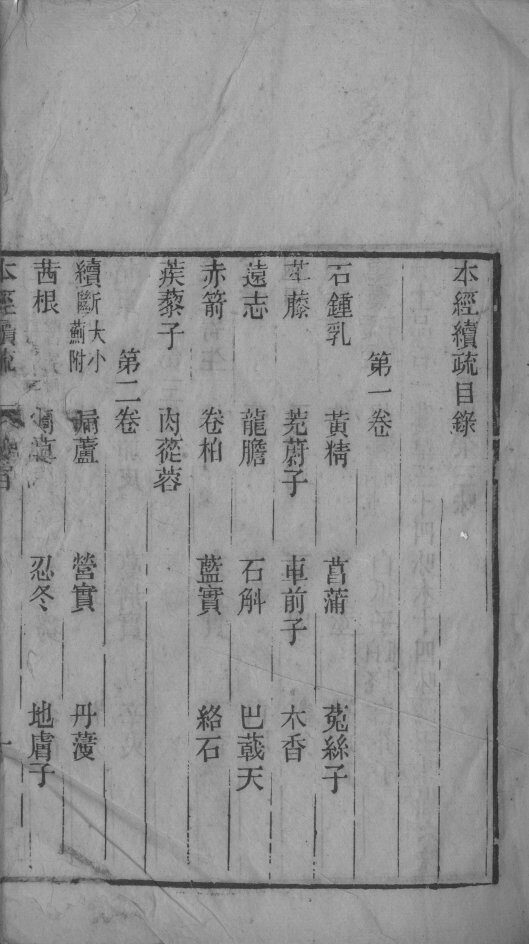 本經續疏目錄
第一卷
石鍾乳 黃精 菖蒲 菟絲子
牛膝 茺蔚子 車前子 木香
遠志 龍膽 石斛 巴戟天
赤箭 卷柏 藍實 絡石
蒺藜子 肉蓯蓉
第二卷
續斷大小薊附 漏蘆 營實 丹蔘
茜根 忍冬 地膚子
本經續疏 一